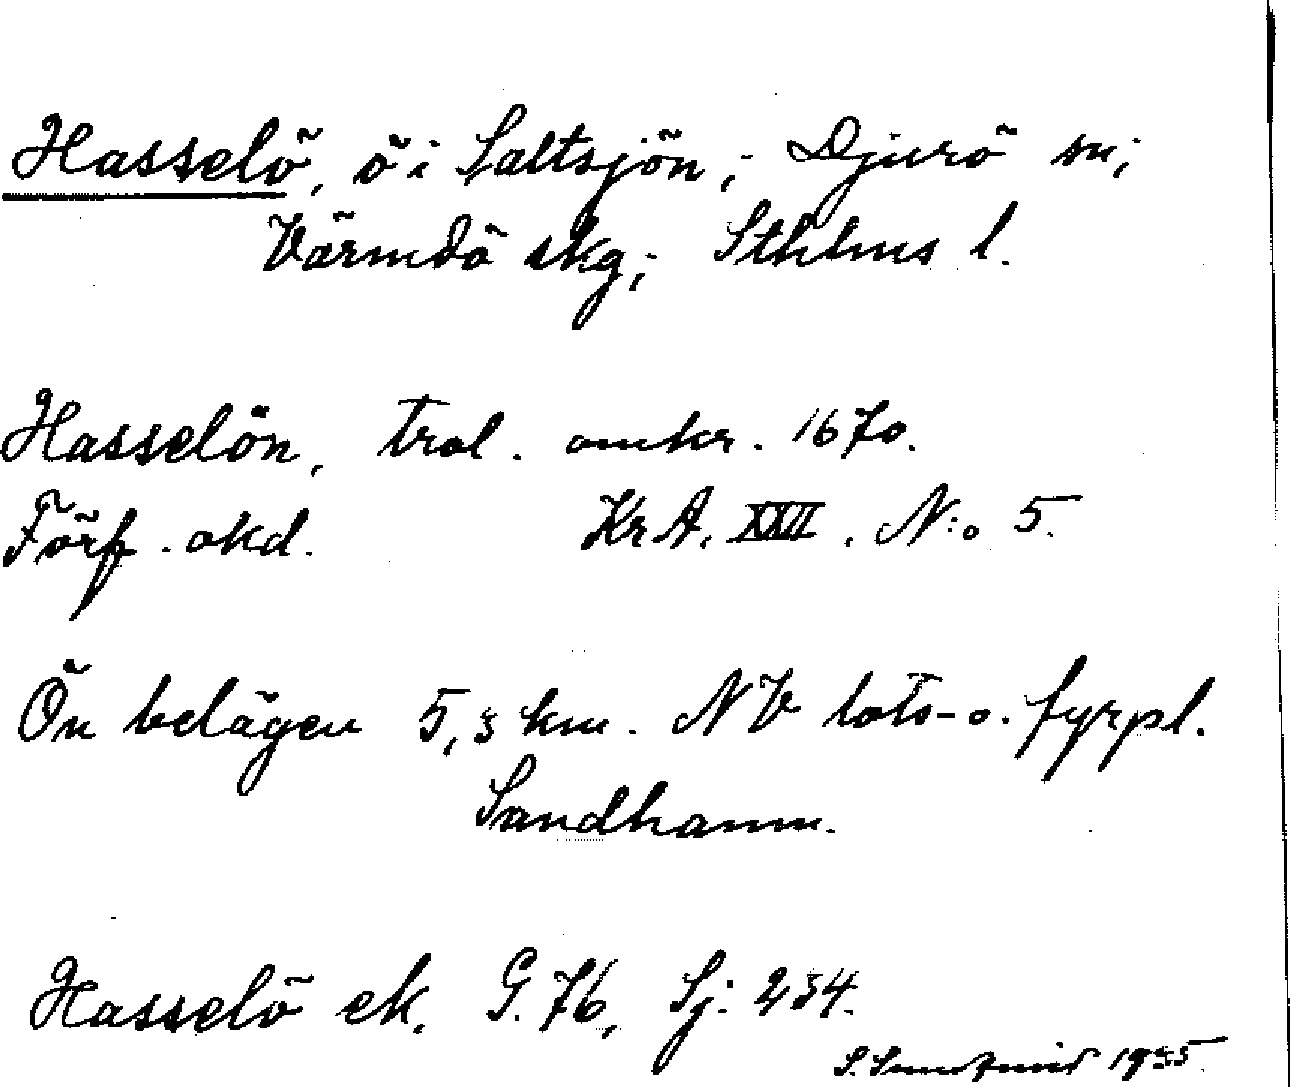 Hasselö, ö i Saltsjön; Djurö sn;
Värmdö skg; Sthlms l.
Hasselön, trol. omkr. 1670.
Förf. okd. KrA. XXII. N:o 5.
Ön belägen 5,3 km. NV lots- o. fyrpl.
Sandhamn.
Hasselö ek. G. 76, Sj: 234.
S. 1935